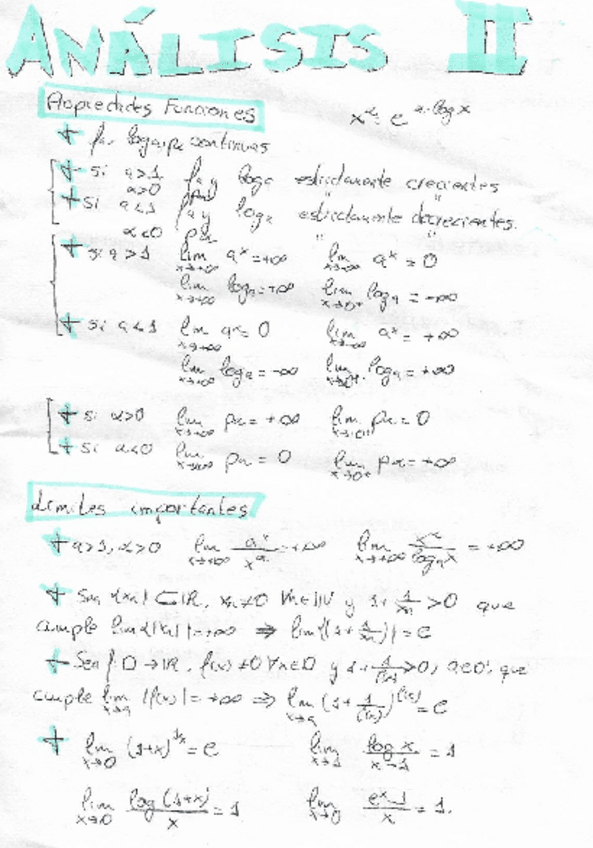 ANÁLISIS II
Propiedades Funciones
x^α = e^{α·log x}
+ f_a, log_a, p_α continuas
+ si a>1 f_a y log_a estrictamente crecientes
α>0 p_α "
+ si a<1 f_a y log_a estrictamente decrecientes.
α<0 p_α "
+ si a>1 lim_{x→+∞} a^x = +∞ lim_{x→-∞} a^x = 0
lim_{x→+∞} log_a = +∞ lim_{x→0+} log_a = -∞
+ si a<1 lim_{x→+∞} a^x = 0 lim_{x→-∞} a^x = +∞
lim_{x→+∞} log_a = -∞ lim_{x→0+} log_a = +∞
+ si α>0 lim_{x→+∞} p_α = +∞ lim_{x→0+} p_α = 0
+ si α<0 lim_{x→+∞} p_α = 0 lim_{x→0+} p_α = +∞
Límites importantes
+ a>1, α>0 lim_{x→+∞} a^x/x^α = +∞ lim_{x→+∞} x^α/log_a x = +∞
+ Sea {x_n} ⊂ ℝ, x_n ≠ 0 ∀n∈ℕ y 1 + 1/x_n > 0 que
cumple lim {|x_n|} = +∞ ⇒ lim {(1 + 1/x_n)} = e
+ Sea f: D → ℝ, f(x) ≠ 0 ∀x∈D y 1 + 1/f(x) > 0, a∈D', que
cumple lim_{x→a} |f(x)| = +∞ ⇒ lim_{x→a} (1 + 1/f(x))^{f(x)} = e
+ lim_{x→0} (1+x)^{1/x} = e lim_{x→1} log x/x-1 = 1
lim_{x→0} log (1+x)/x = 1 lim_{x→0} e^x-1/x = 1.